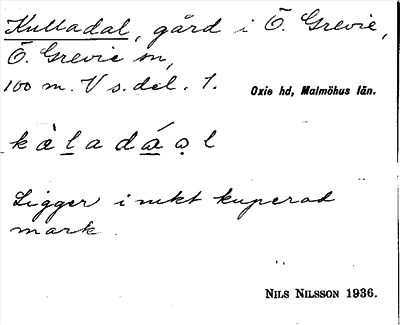 Kulladal, gård i Ö. Grevie,
Ö. Grevie sn,
100 m. V s.del. 1.
Oxie hd, Malmöhus län.
Ligger i mkt kuperad
mark.
NILS NILSSON 1936.